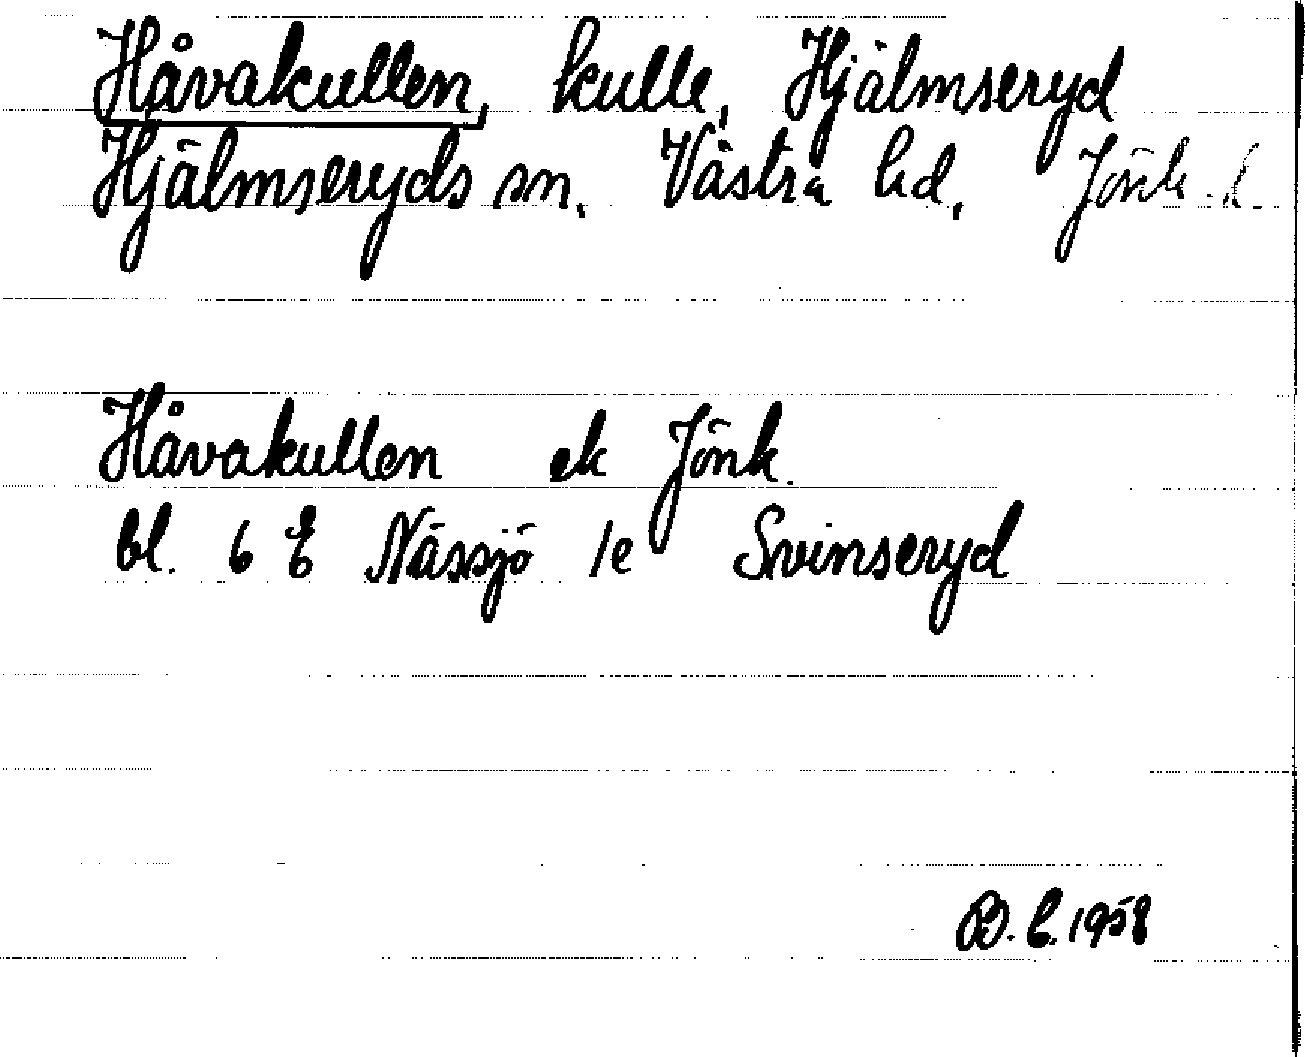 Håvakullen, kulle, Hjälmseryd
Hjälmseryds sn. Västra hd. Jönk. l.
Håvakullen ek Jönk.
bl. 6 E Nässjö 1e Svinseryd
1958